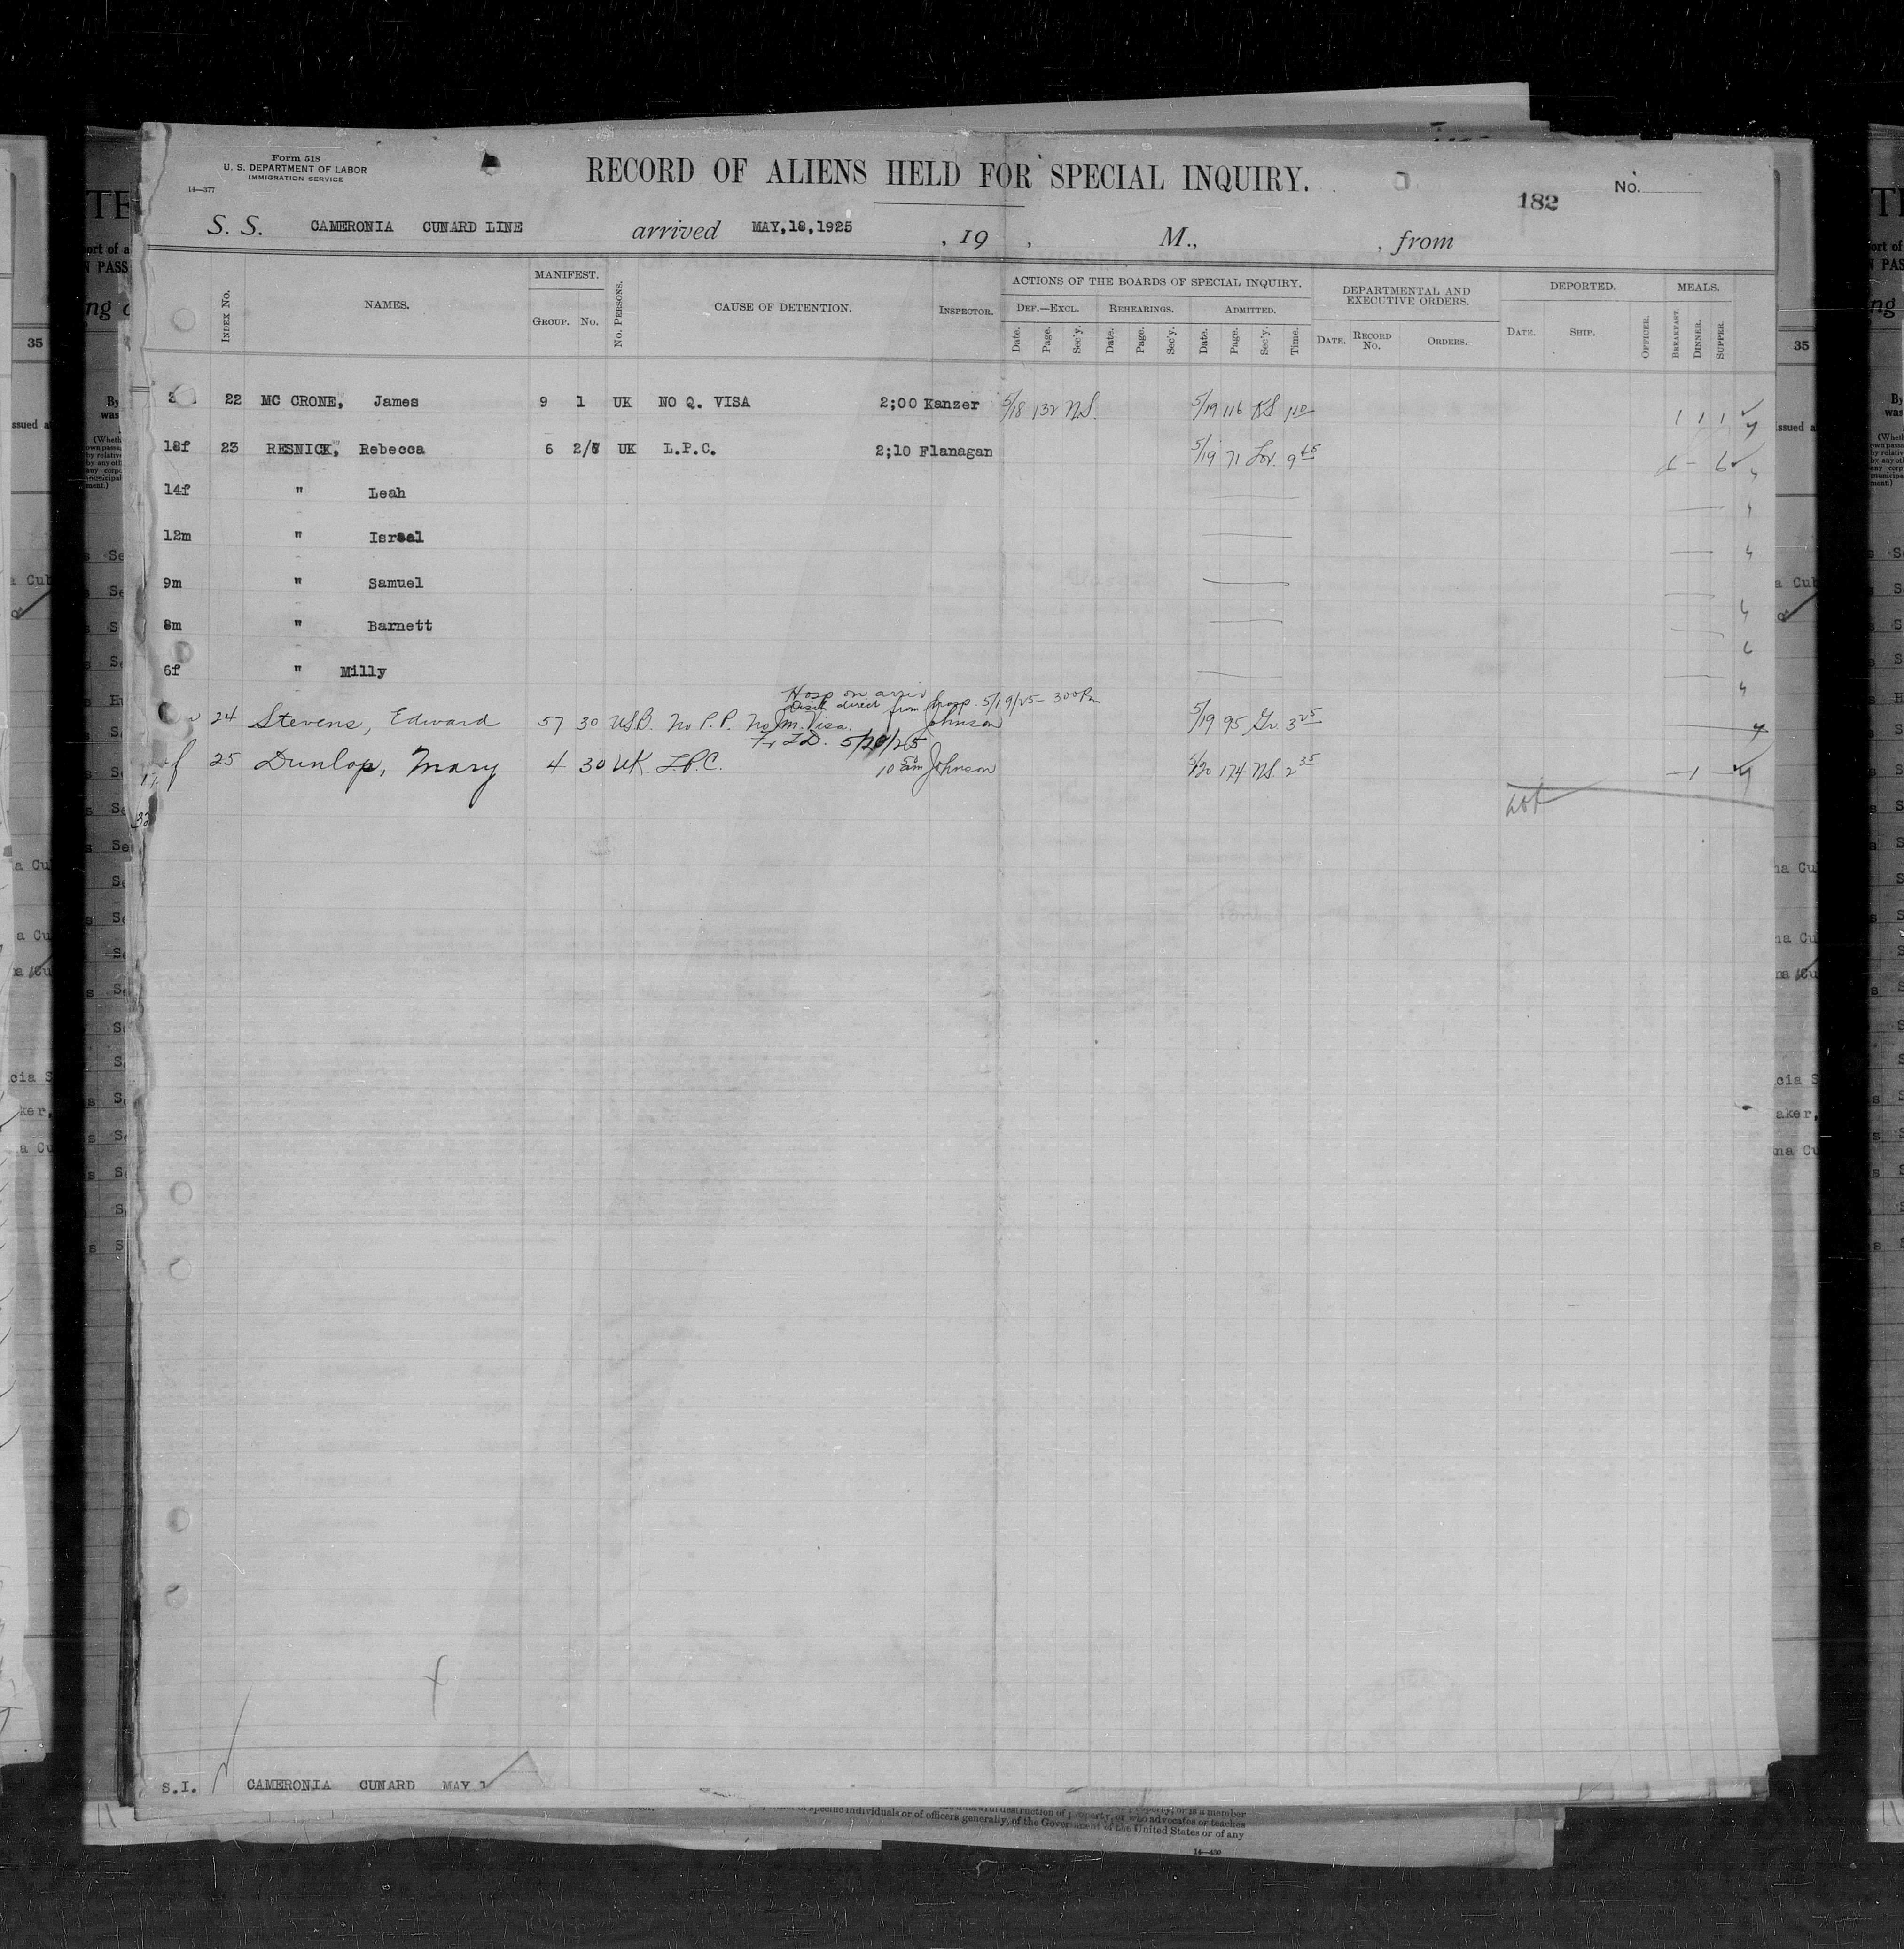 Form 518
U. S. DEPARTMENT OF LABOR
IMMIGRATION SERVICE
14—377
RECORD OF ALIENS HELD FOR SPECIAL INQUIRY.
182
No.
S. S. CAMERONIA CUNARD LINE arrived MAY,18,1925 , 19 , M., , from
INDEX No. NAMES. MANIFEST. GROUP. No. No. PERSONS. CAUSE OF DETENTION. INSPECTOR.
ACTIONS OF THE BOARDS OF SPECIAL INQUIRY. DEF.—EXCL. REHEARINGS. ADMITTED.
Date. Page. Sec'y. Date. Page. Sec'y. Date. Page. Sec'y. Time.
DEPARTMENTAL AND EXECUTIVE ORDERS. DATE. RECORD No. ORDERS.
DEPORTED. DATE. SHIP. OFFICER.
MEALS. BREAKFAST. DINNER. SUPPER.
22 MC CRONE, James 9 1 UK NO Q. VISA 2;00 Kanzer 5/18 132 N.S. 5/19 116 1 10 1 1 1
18f 23 RESNICK, Rebecca 6 2/7 UK L.P.C. 2;10 Flanagan 5/19 71 9 45
14f " Leah
12m " Israel
9m " Samuel
8m " Barnett
6f " Milly
Hosp on
direct from hosp. 5/19/25 - 300 Pm
24 Stevens, Edward 57 30 USB. No P.P. No Im. Visa. Johnson 5/19 95 Gr. 3 25
5/20/25
25 Dunlop, Mary 4 30 UK L.P.C. 10 50 am Johnson 5/20 174 N.S. 2 35 1
S.I. CAMERONIA CUNARD MAY 1
of specific individuals or of officers generally, of the Government of the United States or of any
14—430